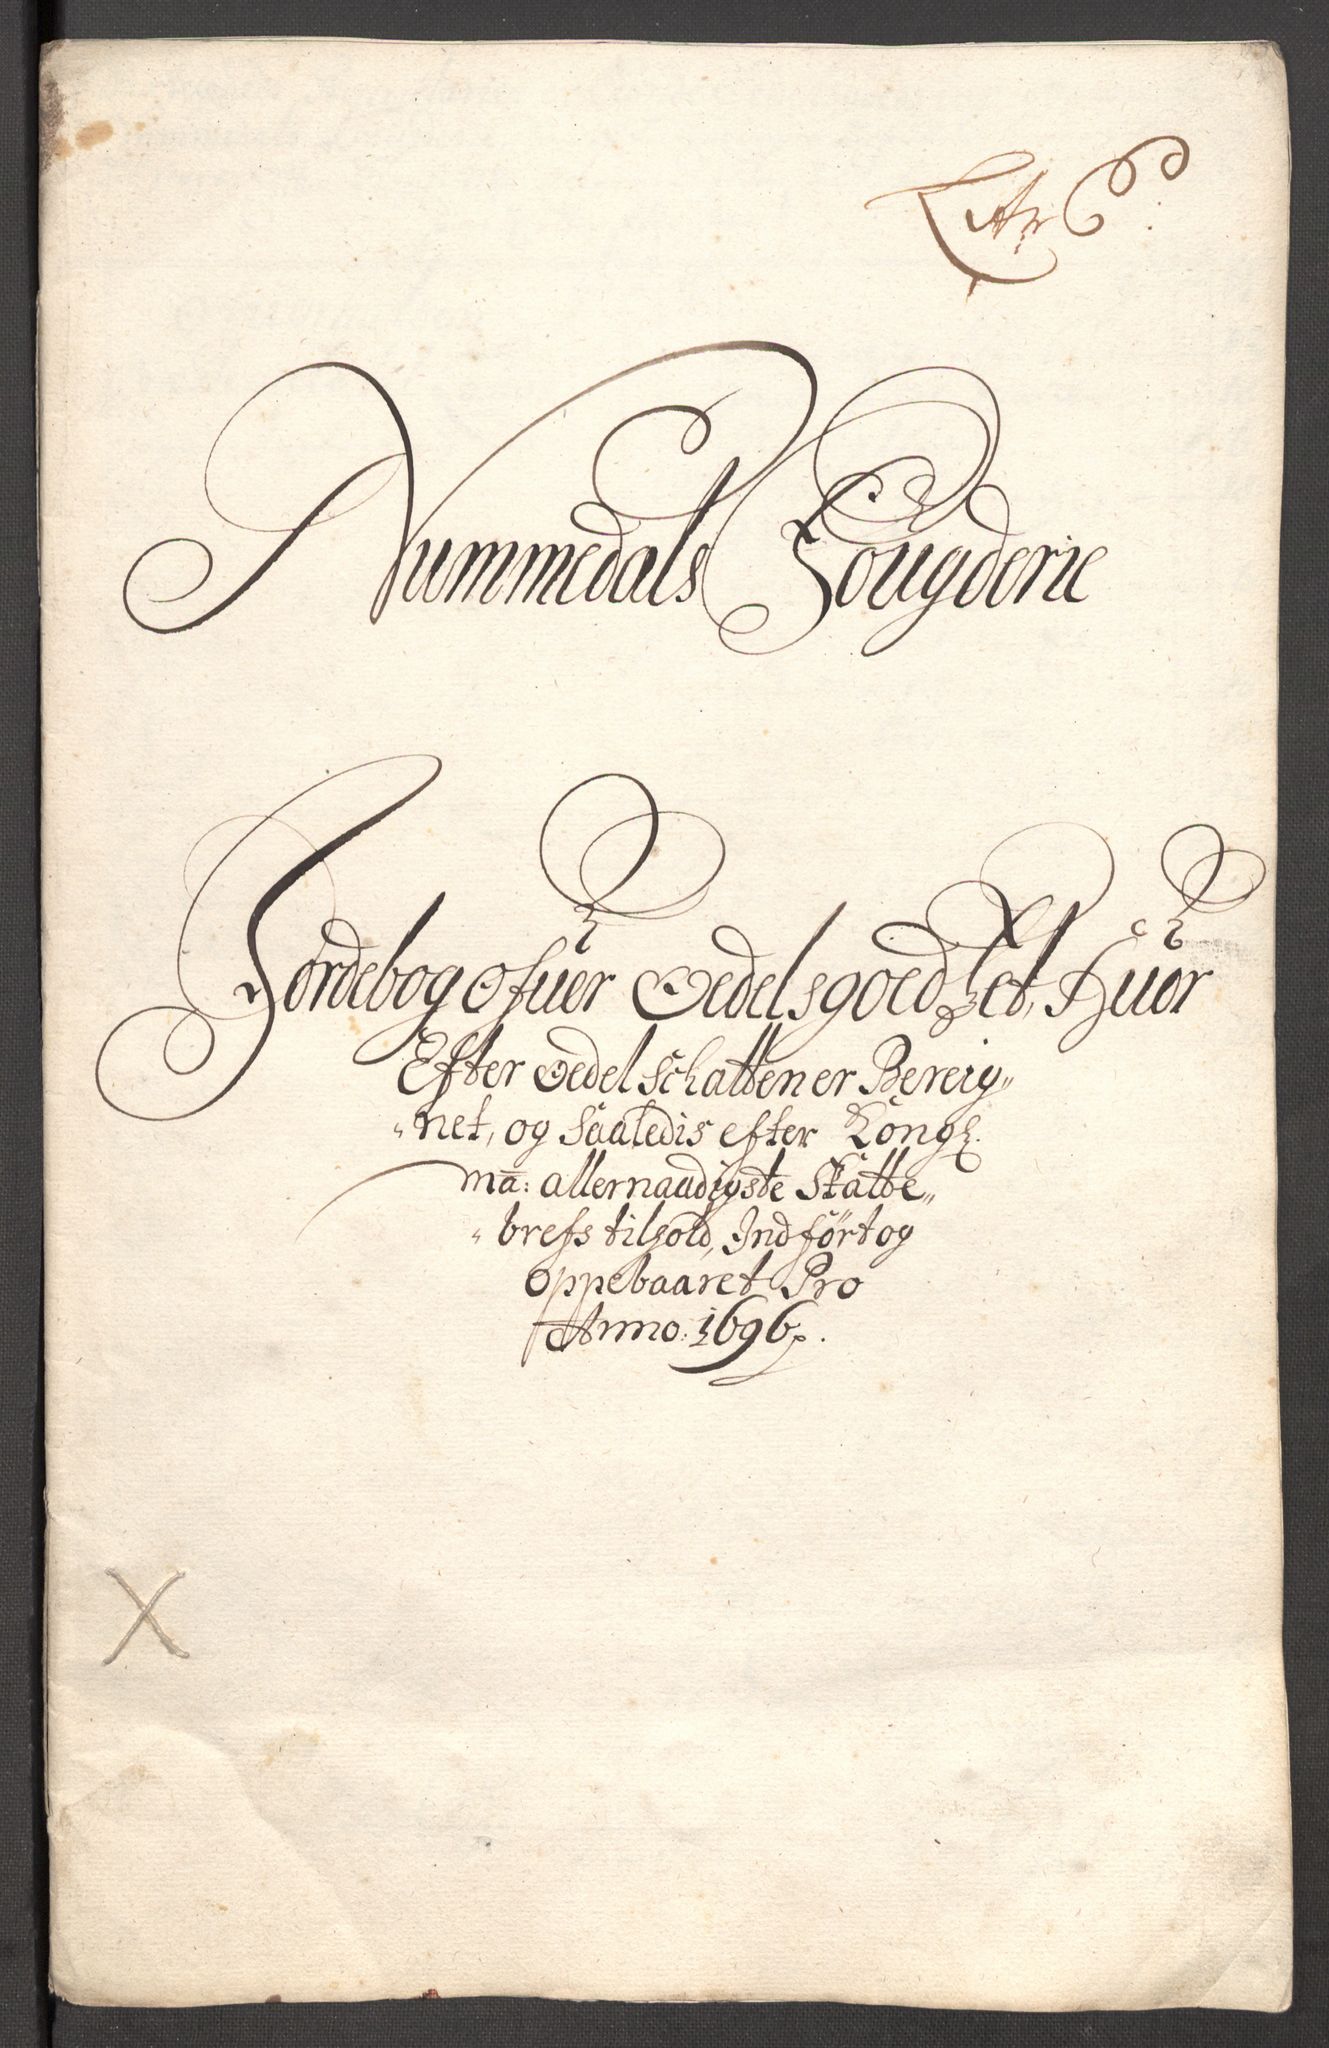 Litr C:
Nummedals Fougderie
Jordebog ofuer Oedelsgoedzet, Huor
Efter Oedelschatten er Bereig„
„net, og Saaledis efter Kongl.
ma: allernaadigste Skatte„
„brefs tilhold, Indført og
oppebaaret Pro
Anno: 1696.